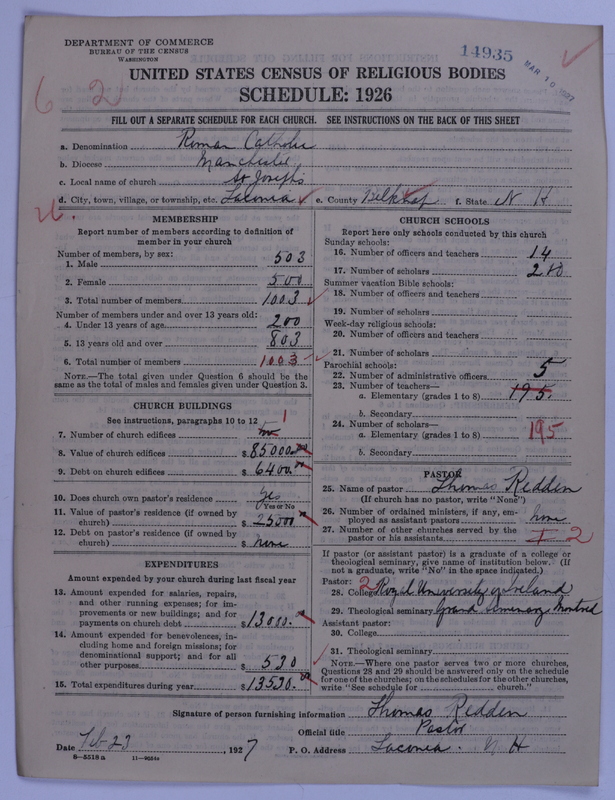 DEPARTMENT OF COMMERCE
BUREAU OF THE CENSUS
WASHINGTON
14935
MAR 10 1927
6 2
UNITED STATES CENSUS OF RELIGIOUS BODIES
SCHEDULE: 1926
FILL OUT A SEPARATE SCHEDULE FOR EACH CHURCH. SEE INSTRUCTIONS ON THE BACK OF THIS SHEET
a. Denomination Roman Catholic
b. Diocese Manchester
c. Local name of church St Joseph's
d. City, town, village, or township, etc. Laconia e. County Belknap f. State N H
MEMBERSHIP
Report number of members according to definition of
member in your church
Number of members, by sex:
1. Male 503
2. Female 500
3. Total number of members 1003
Number of members under and over 13 years old:
4. Under 13 years of age 200
5. 13 years old and over 803
6. Total number of members 1003
NOTE.—The total given under Question 6 should be the
same as the total of males and females given under Question 3.
CHURCH BUILDINGS
See instructions, paragraphs 10 to 12
7. Number of church edifices 1
8. Value of church edifices $85000.00
9. Debt on church edifices $6400.00
10. Does church own pastor's residence Yes
Yes or No
11. Value of pastor's residence (if owned by
church) $25000
12. Debt on pastor's residence (if owned by
church) $none
EXPENDITURES
Amount expended by your church during last fiscal year
13. Amount expended for salaries, repairs,
and other running expenses; for im-
provements or new buildings; and for
payments on church debt $13000.
14. Amount expended for benevolences, in-
cluding home and foreign missions; for
denominational support; and for all
other purposes $530
15. Total expenditures during year $13530.00
CHURCH SCHOOLS
Report here only schools conducted by this church
Sunday schools:
16. Number of officers and teachers 14
17. Number of scholars 280
Summer vacation Bible schools:
18. Number of officers and teachers
19. Number of scholars
Week-day religious schools:
20. Number of officers and teachers
21. Number of scholars
Parochial schools:
22. Number of administrative officers 5
23. Number of teachers—
a. Elementary (grades 1 to 8) 195
b. Secondary
24. Number of scholars—
a. Elementary (grades 1 to 8) 195
b. Secondary
PASTOR
25. Name of pastor Thomas Redden
(If church has no pastor, write "None")
26. Number of ordained ministers, if any, em-
ployed as assistant pastors none
27. Number of other churches served by the
pastor or his assistants 2
If pastor (or assistant pastor) is a graduate of a college or
theological seminary, give name of institution below. (If
not a graduate, write "No" in the space indicated.)
Pastor:
28. College Royal University of Ireland
29. Theological seminary Grand Seminary Montreal
Assistant pastor:
30. College
31. Theological seminary
NOTE.—Where one pastor serves two or more churches,
Questions 28 and 29 should be answered only on the schedule
for one of the churches; on the schedules for the other churches,
write "See schedule for church."
Signature of person furnishing information Thomas Redden
Official title Pastor
Date Feb 23, 1927 P. O. Address Laconia. N H
8—5518a 11—9084a